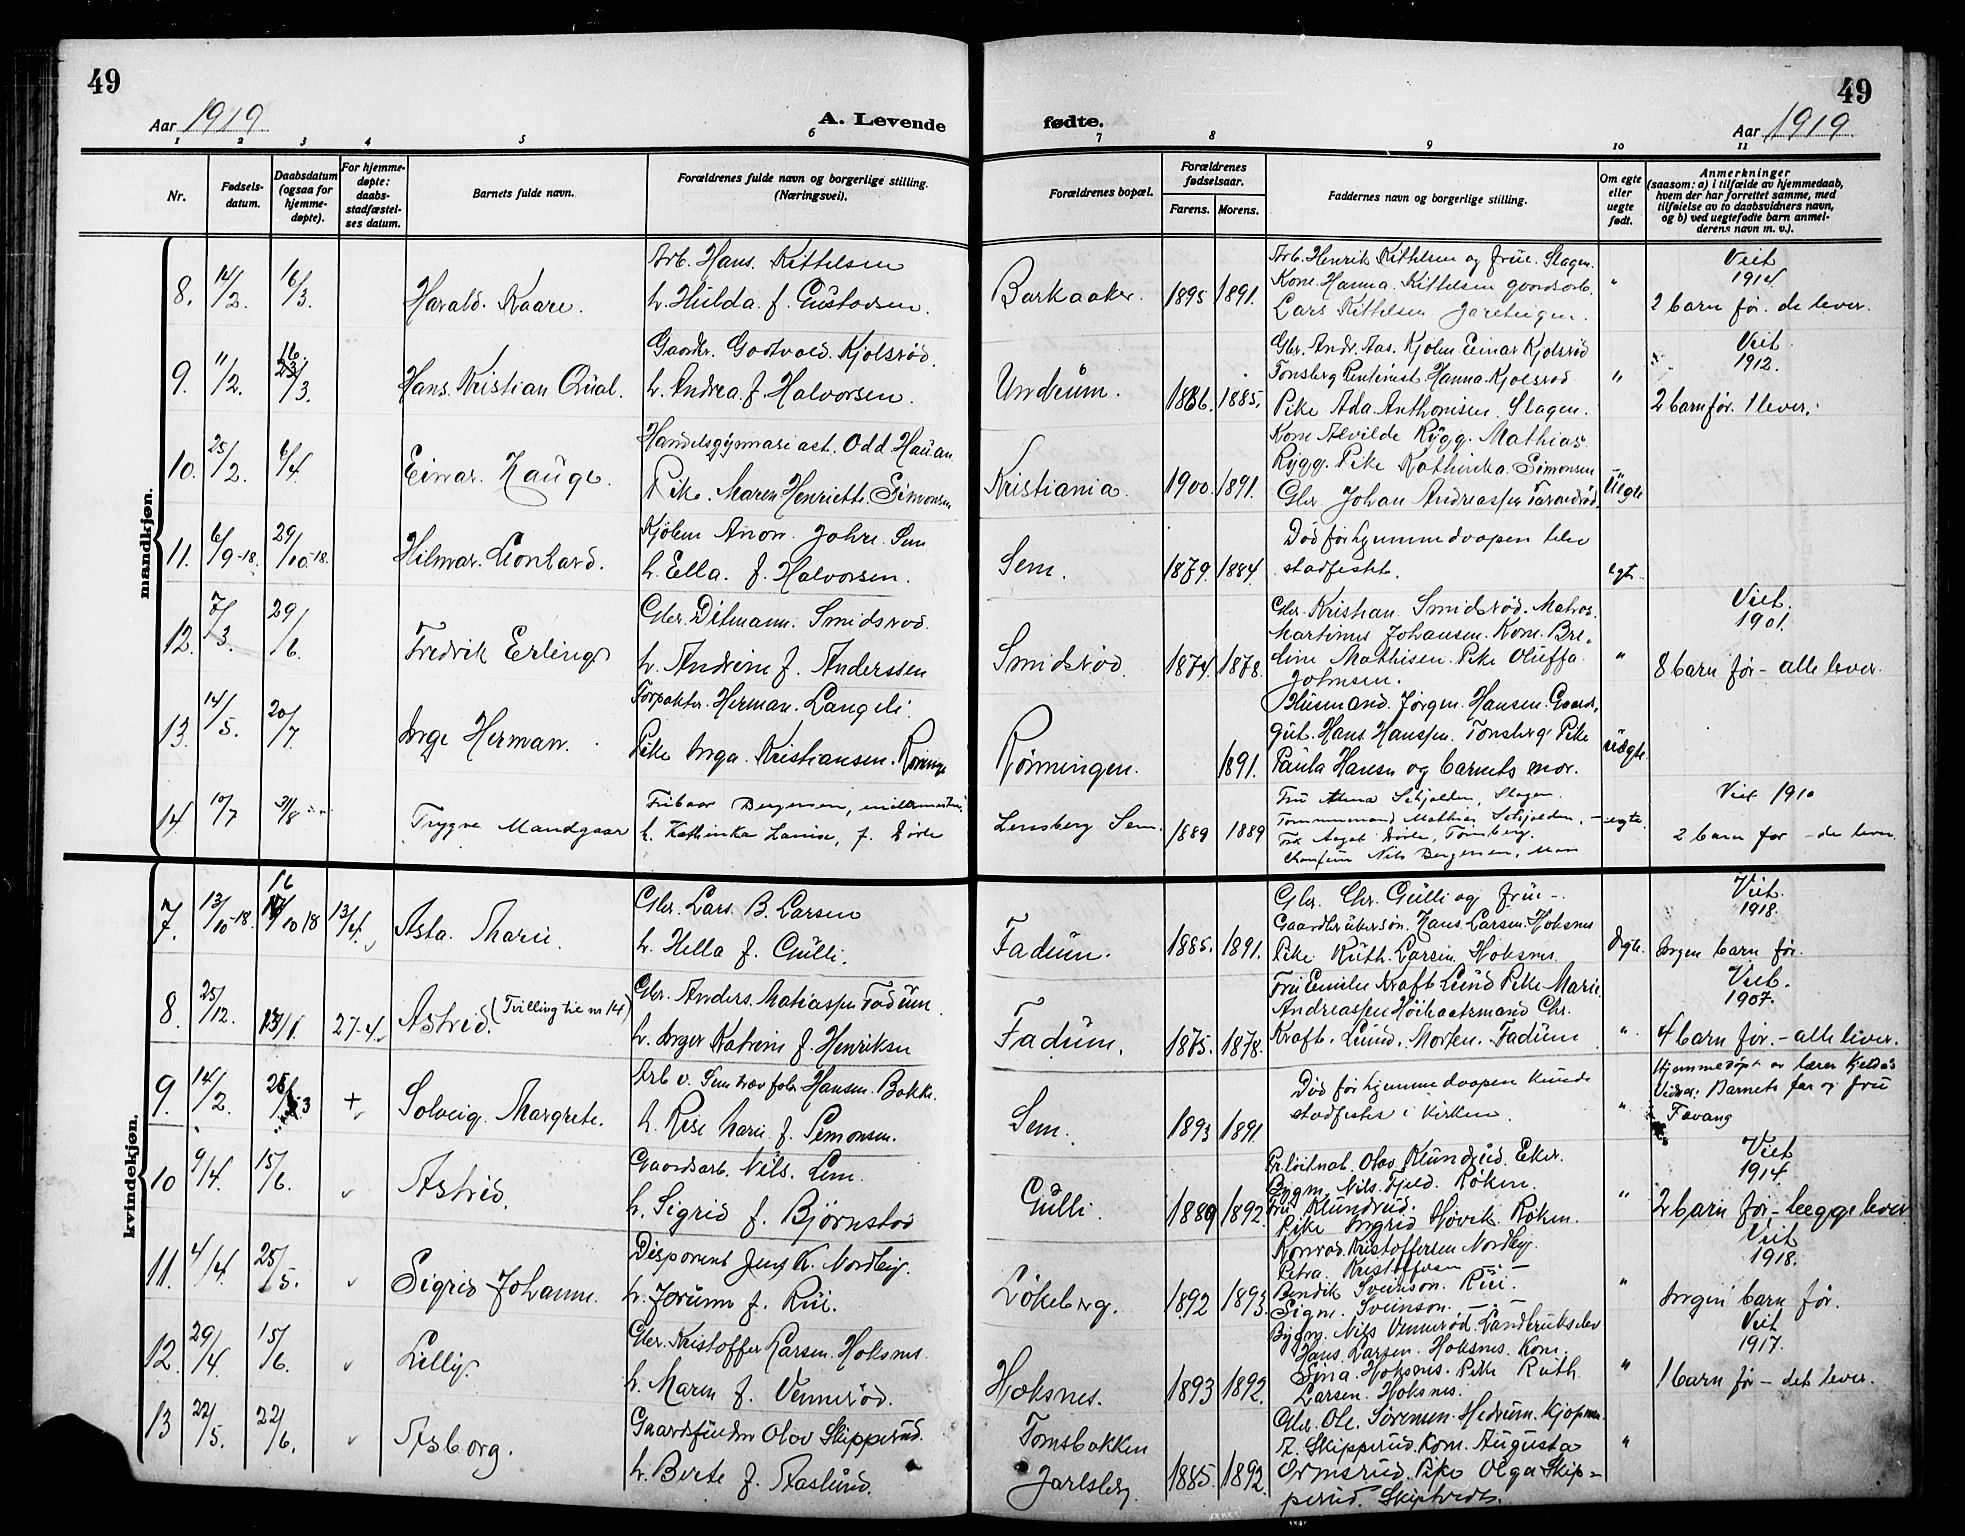 49
49
Aar 1919
A. Levende
fødte.
Aar 1919
1 2 3 4 5 6 7 8 9 10 11
Nr.
Fødsels-
datum.
Daabsdatum
(ogsaa for
hjemme-
døpte).
For hjemme-
døpte:
daabs-
stadfæstel-
ses datum.
Barnets fulde navn.
Forældrenes fulde navn og borgerlige stilling.
(Næringsvei).
Forældrenes bopæl.
Forældrenes
fødselsaar.
Farens. Morens.
Faddernes navn og borgerlige stilling.
Om egte
eller
uegte
født.
Anmerkninger
(saasom: a) i tilfælde av hjemmedaab,
hvem der har forrettet samme, med
tilføielse av to daabsvidners navn,
og b) ved uegtefødte barn anmel-
derens navn m. v.).
mandkjøn.
8. 14/2. 16/3. Harald. Kaare.
Arb. Hans. Kittelsen
h. Hilda. f. Gustavsen.
Barkaaker. 1895 1891.
Arb. Henrik Kittelsen og frue. Slagen.
Kone Hanna. Kittelsen gaardsarb.
Lars Kittelsen Jareteigen.
"
Viet
1914
2 barn før. de lever.
9. 11/2. 16. 23/3. Hans. Kristian Qual.
Gaardbr. Godtvald. Kjolsrød.
h. Andrea. f. Halvorsen.
Undrum. 1886. 1885.
Gbr. Andr. Aas. Kjolen Einar Kjolsrød
Tønsberg Hanna. Kjolsrød
Pike Ada. Anthonisen. Slagen.
"
Viet.
1912.
2 barn før. 1 lever.
10. 25/2. 6/4. Einar. Hauge.
Handelsgymnasiast. Odd. Hauan
Pike. Maren Henriette. Simonsen
Kristiania. 1900. 1891.
Kone Alvilde Rygg. Mathias
Rygg. Pike Kathinka. Simonsen
Gbr Johan Andreassen Tarandrød.
Uegte
11. 6/9-18. 29/10-18. Hilmar. Leonhard.
Kjølem Anon. Johre. Sem
h. Ella. f. Halvorsen.
Sem. 1879. 1884.
Død før hjemmedaapen blev
stadfestet.
egt.
12. 7/3. 29/6. Fredrik Erling
Gbr. Ditmann. Smidsrød.
h. Andrine f. Anderssen
Smidsrød. 1874. 1878.
Gbr. Kristian. Smidsrød. Matros.
Martinus Johansen. Kone. Bre-
dine Mathisen. Pike Oluffa.
Johnsen.
"
Viet.
1901.
8 barn før - alle lever.
13. 14/5. 20/7. Inge Herman.
Forpakter. Herman. Langeli.
Pike Inga. Kristiansen.
Rønningen. 1891.
Husmand. Jørgen. Hansen. Gaards.
gut. Hans Hanssen. Tønsberg. Pike
Paula Hansen og barnets mor.
uegte
14. 10/7 31/8 Trygve Mandgaar
Bergersen,
h. Kathinka Lovise, f. Dørle
Lensberg Sem. 1889 1889
Fru Anna Schjolden, Slagen.
Tømmermand Mathias Schjolden, -
Frk Aagot Dørle, Tønsberg.
Nils Bergersen, Moss
egte.
Viet 1910
2 barn før - de lever
kvindekjøn.
7. 13/10-18. 16/10 18 13/4. Asta. Marie.
Gbr. Lars. B. Larsen
h. Hella f. Gulli.
Fadum. 1885. 1891.
Gbr. Chr. Gulli og frue -.
Gaardbrukersøn. Hans. Larsen. Hoksnes
Pike Ruth. Larsen. Hoksnes.
Ægte.
Viet.
1918.
Ingen barn før.
8. 25/12. 13/1 27-4. Astrid. (Tvilling til nr 14)
Gbr. Anders. Mathiassen Fadum.
h. Inger Katrine f. Henriksen
Fadum. 1875. 1878.
Fru Emilie Kraft Lund Pike Marie
Andreassen Chr.
Kraft. Lund. Morten. Fadum
"
Viet.
1907.
4 barn før. - alle lever.
9. 14/2. 25/3 + Solveig. Margrete.
Arb v. Sem Hansen. Bakke.
h. Rise Marie f. Simonsen.
Sem. 1893 1891.
Død før hjemmedaapen kunde
stadfestes i kirken.
"
Hjemmedøpt av lærer Kjeldås
Vidner: Barnets far og fru
Favang
10 9/4. 15/6. Astrid.
Gaardsarb. Nils. Lem.
h. Sigrid f. Bjørnstad
Gulli. 1889 1892.
Pr.løitnat. Olav. Klundrud. Eker.
Bygm. Nils. Fjeld. Røken.
Fru Klundrud.
Pike Ingrid Høvik. Røken.
"
Viet
1914.
2 barn før, - begge lever
11. 4/4. 25/5. Sigrid Johanne.
Disponent Jens K. Nordby.
h. Jorunn f. Rui.
Løkeberg. 1892 1893
Konrad. Kristoffersen Nordby.
Petra. Kristoffersen -
Bendik Sveinson. Rui.
Sign. Sveinson. - -
"
Viet
1918.
Ingen barn før.
12. 29/4. 15/6. Lilly.
Gbr. Kristoffer Larsen. Hoksnes.
h. Maren f. Vennerød.
Hoksnes. 1893 1892.
Bygm. Nils Vennerød. Landbrukselev
Hans. Larsen. Hoksnes. Kone.
Sina. Hoksnes. Pike Ruth
Larsen. Hoksnes.
"
Viet
1917.
1 barn før - det lever.
13 22/5. 22/6. Asborg.
Gaardsfuldm Olav Skipperud.
h. Berte f. Aaslund.
Tomsbakken
Jarlsberg. 1885 1892.
Gbr. Ole. Sørensen. Hedrum. Kjøpman.
A. Skipperud. Kone. Augusta
Ormsrud. Pike Olga Skip-
perud. Skiptvedt.
"